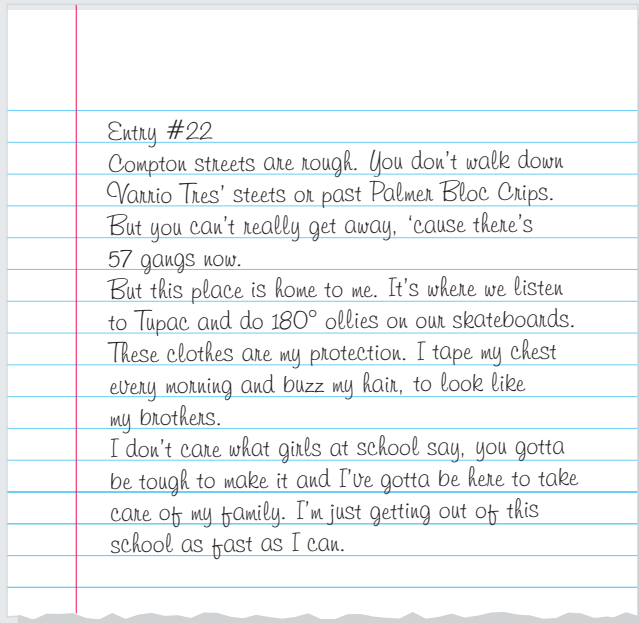 Entry #22
Compton streets are rough. You don't walk down
Varrio Tres' steets or past Palmer Bloc Crips.
But you can't really get away, 'cause there's
57 gangs now.
But this place is home to me. It's where we listen
to Tupac and do 180° ollies on our skateboards.
These clothes are my protection. I tape my chest
every morning and buzz my hair, to look like
my brothers.
I don't care what girls at school say, you gotta
be tough to make it and I've gotta be here to take
care of my family. I'm just getting out of this
school as fast as I can.